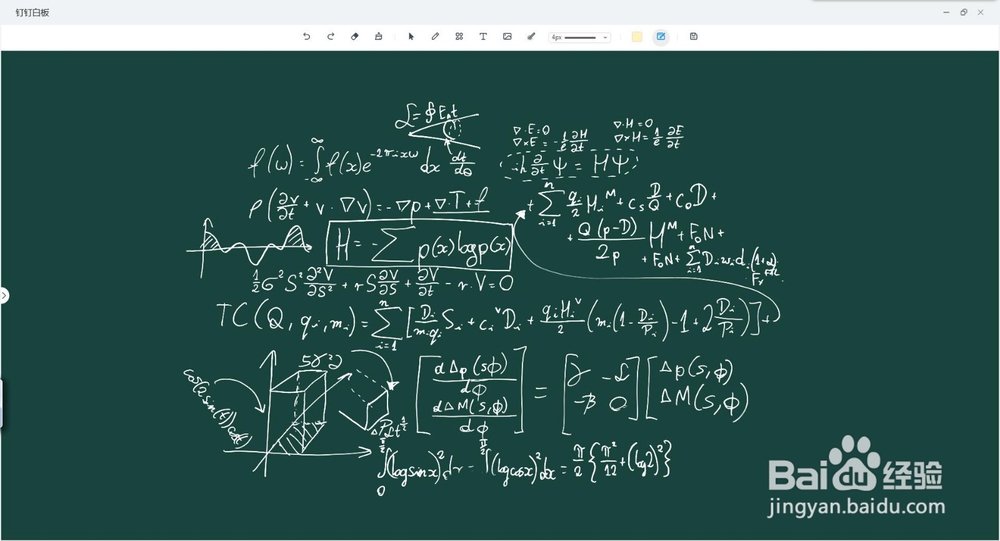 钉钉白板
4px
L = ∮E₀t
∇·E=0 ∇·H=0
∇×E = -1/c ∂H/∂t ∇×H = 1/c ∂E/∂t
f(ω) = ∫_{-∞}^{∞} f(x)e^{-2πixω} dx dt/dθ
iħ ∂/∂t Ψ = HΨ
ρ(∂v/∂t + v·∇v) = -∇p + ∇·T + f
+ ∑_{i=1}^{n} q_i/2 H_i^M + c_s D/Q + c_0 D +
H = -∑ p(x) log p(x)
+ Q(p-D)/2p H^M + F_0N +
+ F_0N + ∑_{i=1}^{n} D_i w_i d_i
1/2 σ²S² ∂²V/∂S² + rS ∂V/∂S + ∂V/∂t - r·V = 0
TC(Q, q_i, m_i) = ∑_{i=1}^{n} [D_i/m_i q_i S_i + c_i^v D_i + q_i H_i^v/2 (m_i(1 - D_i/P_i) - 1 + 2 D_i/P_i)] +
[dΔp(s,ϕ)/dϕ dΔM(s,ϕ)/dϕ] = [γ -L -β 0] [Δp(s,ϕ) ΔM(s,ϕ)]
∫_0^{π/2} (log sin x)² dx = ∫^{π/2} (log cos x)² dx = π/2 {π²/12 + (log 2)²}
Baidu 经验
jingyan.baidu.com